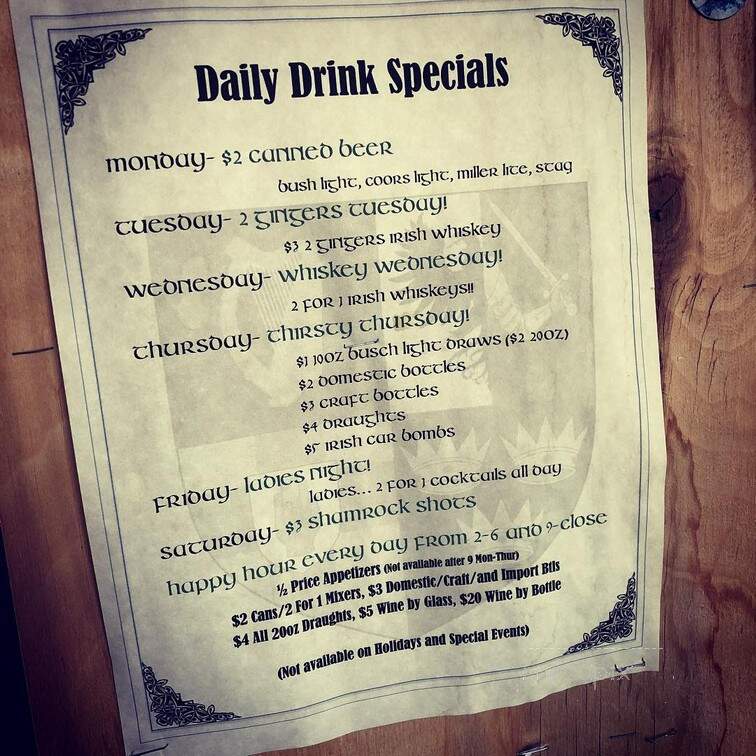 Daily Drink Specials
Monday- $2 Canned Beer
Bush Light, Coors Light, Miller Lite, Stag
Tuesday- 2 Gingers Tuesday!
$3 2 Gingers Irish Whiskey
Wednesday- Whiskey Wednesday!
2 for 1 Irish Whiskeys!!
Thursday- Thirsty Thursday!
$1 10oz Busch Light Draws ($2 20oz)
$2 Domestic Bottles
$3 Craft Bottles
$4 Draughts
$5 Irish Car Bombs
Friday- Ladies Night!
Ladies... 2 for 1 Cocktails All Day
Saturday- $3 Shamrock Shots
Happy Hour Every Day From 2-6 and 9-Close
½ Price Appetizers (Not available after 9 Mon-Thur)
$2 Cans/2 For 1 Mixers, $3 Domestic/Craft/and Import Btls
$4 All 20oz Draughts, $5 Wine by Glass, $20 Wine by Bottle
(Not available on Holidays and Special Events)